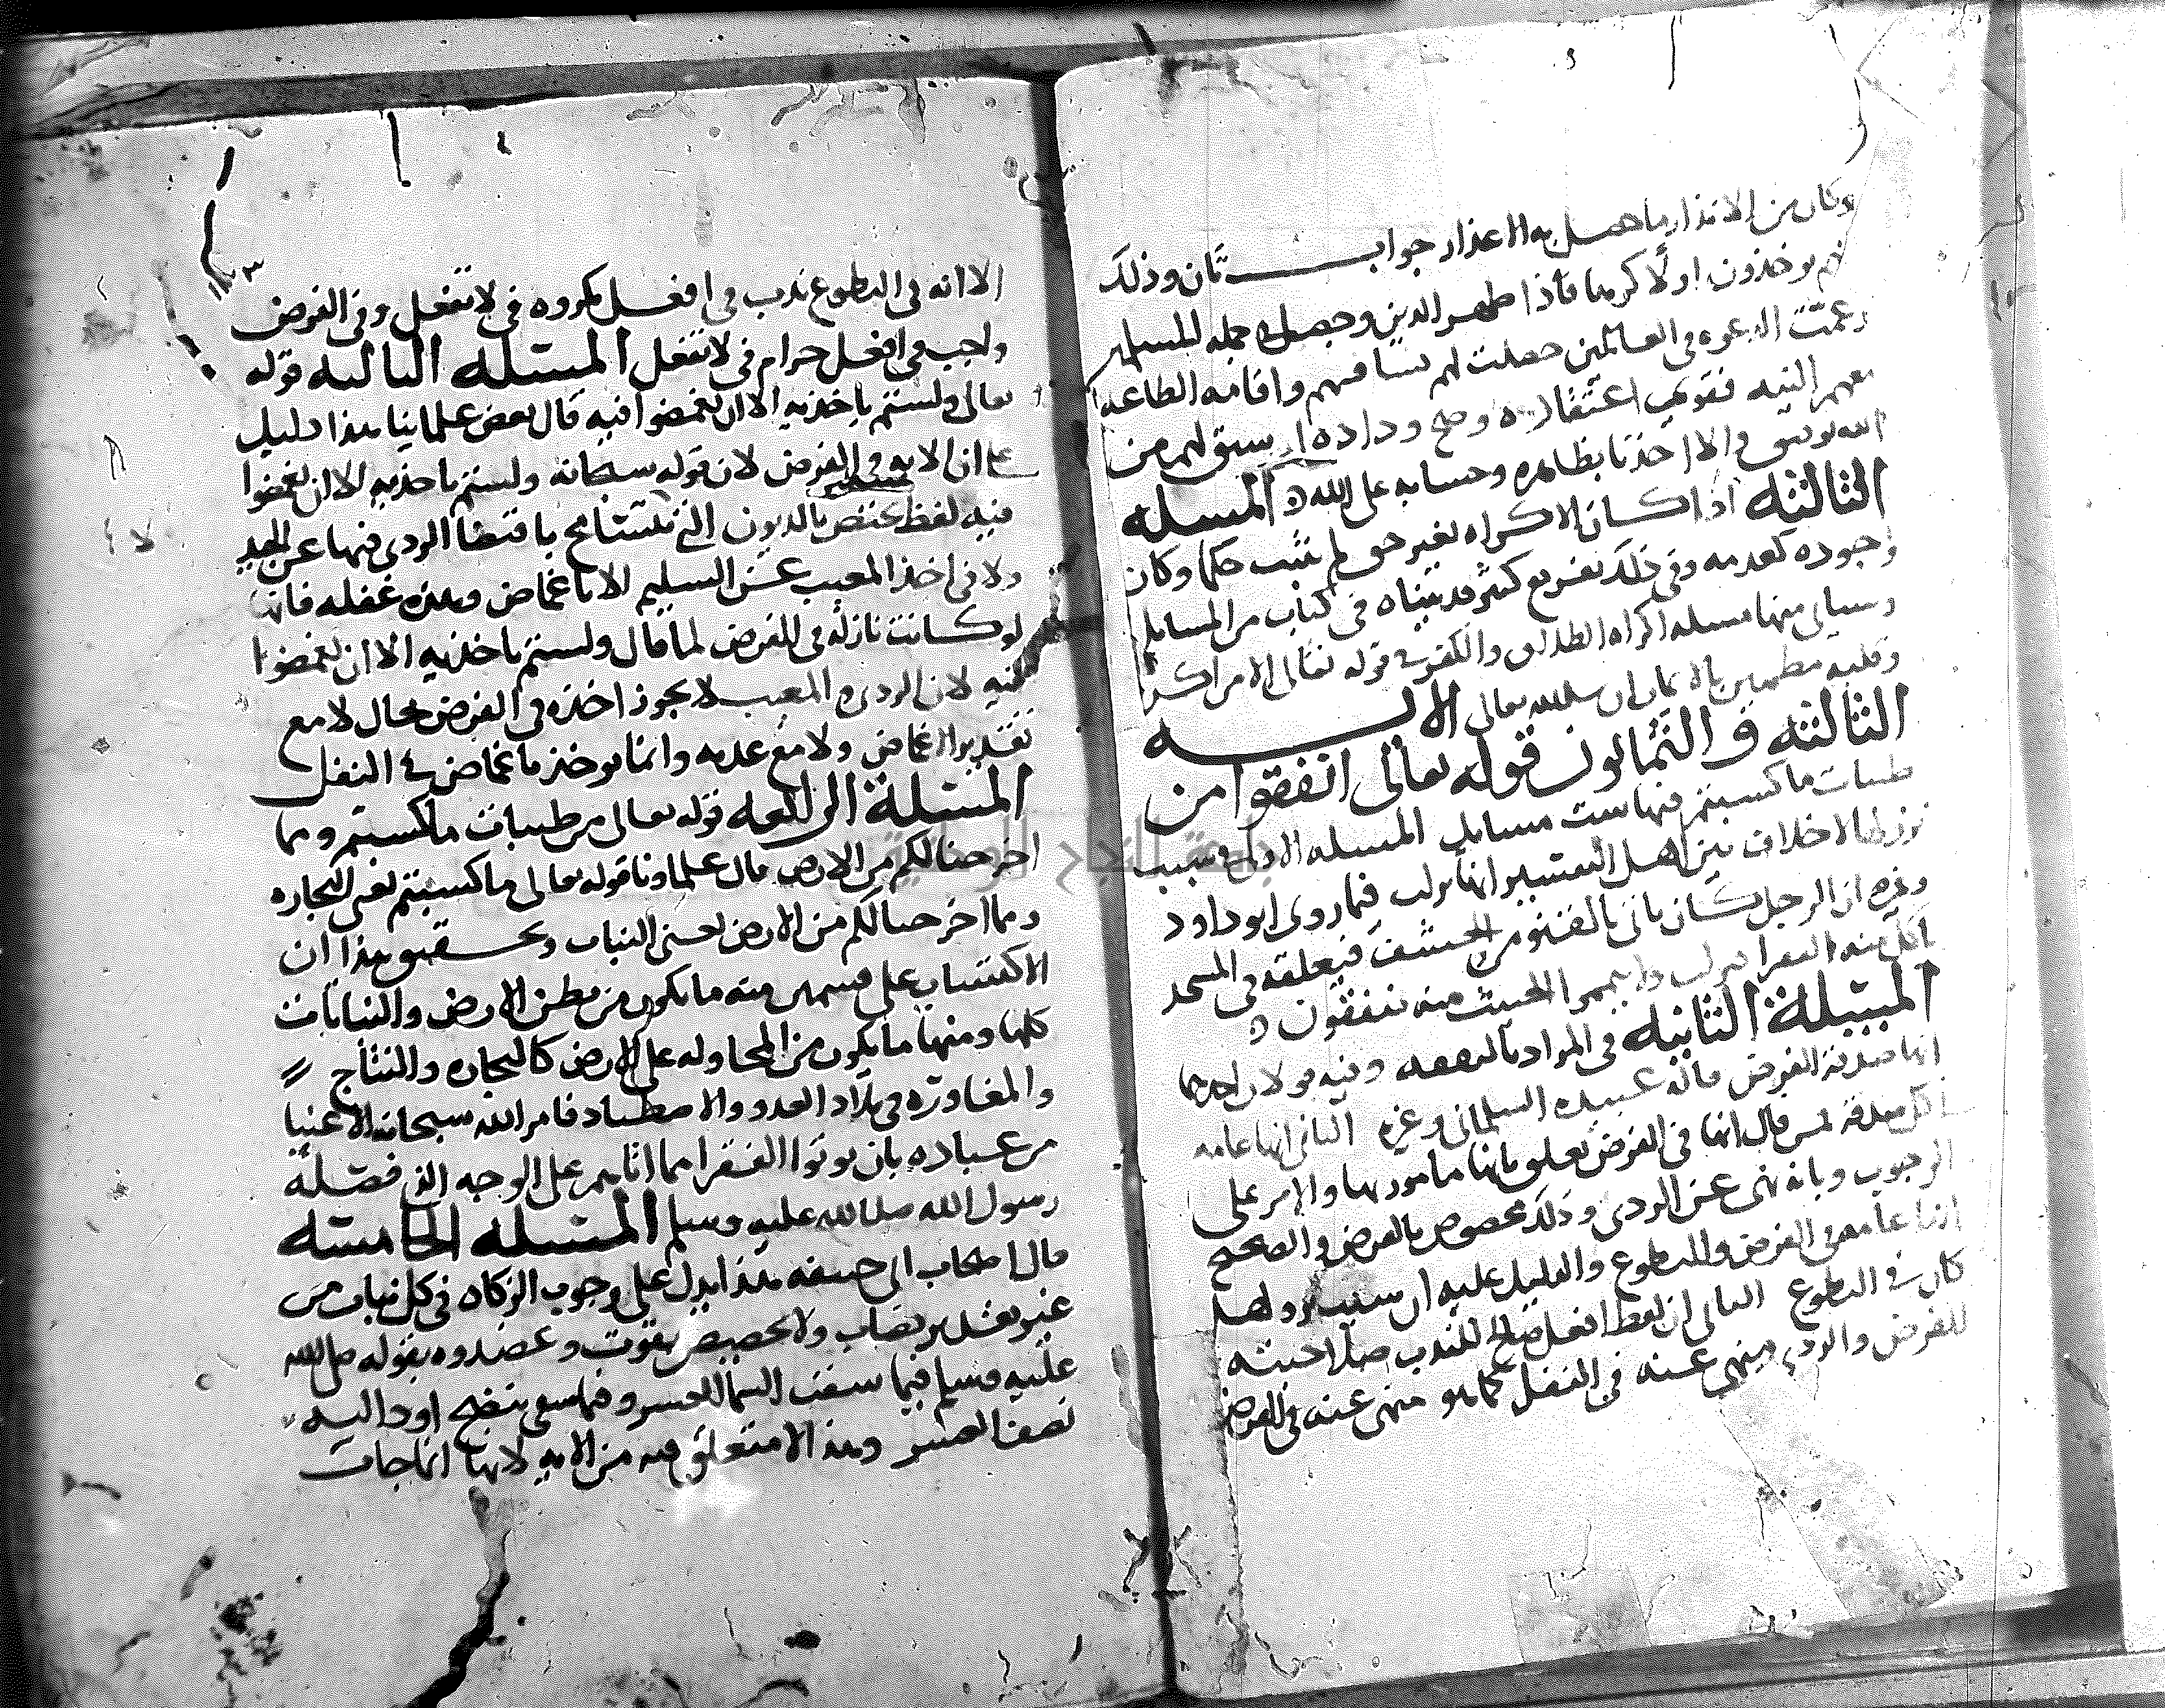 وكان من الانذار ما حصل به الاعذار جواب ثان وذلك
انهم يوخذون اولا كرها فاذا ظهر الدين وحصل في جملة المسلمين
وعمت الدعوة في العالمين حصلت لهم بمثافنتهم واقامة الطاعة
معهم النية فقوي اعتقاده وصح وداده ان سبق لهم من
الله توفيق والا اخذنا بظاهره وحسابه على الله المسلة
الثالثة اذا كان الاكراه بغير حق لم يثبت حكما وكان
وجوده كعدمه وفي ذلك تفريع كثير قد بيناه في كتاب من المسايل
وسياتي منها مسلة اكراه الطلاق والكفر في قوله تعالى الا من اكره
وقلبه مطمين بالايمان ان شا الله تعالى الاية
الثالثة و الثمانون قوله تعالى انفقوا من
طيبات ما كسبتم فيها ست مسايل المسلة الاولى في سبب
نزولها لا خلاف بين اهل التفسير انها نزلت فيما روى ابو داود
وغيره ان الرجل كان ياتي بالقنو من الحشف فيعلقه في المسجد
ياكل منه الفقرا فنزلت ولا تيمموا الخبيث منه تنفقون
المسلة الثانية في المراد بالنفقة وفيه قولان احدهما
انها صدقة الفرض قاله عبيدة السلماني وغيره الثاني انها عامة
في كل صدقة فمن قال انها في الفرض تعلق بانها مامور بها والامر على
الوجوب وبانه نهى عن الردي وذلك مخصوص بالفرض والصحيح
انها عامة في الفرض والتطوع والدليل عليه ان سبب نزولها
كان في التطوع الثاني ان لفظ افعل صالح للندب صلاحيته
للفرض والردي منهي عنه في النفل كما هو منهي عنه في الفرض
١٧٣
الا انه في التطوع ندب في افعل مكروه في لا تفعل وفي الفرض
واجب في افعل حرام في لا تفعل المسئلة الثالثة قوله
تعالى ولستم باخذيه الا ان تغمضوا فيه قال بعض علمائنا هذا دليل
على ان الاية في الفرض لان قوله سبحانه ولستم باخذيه الا ان تغمضوا
فيه لفظ مختص بالديون التي يتسامح باقتضا الردي فيها عن الجيد
ولا في اخذ المعيب عن السليم الا باغماض وهذه غفلة فانها
لو كانت نازلة في الفرض لما قال ولستم باخذيه الا ان تغمضوا
فيه لان الردي والمعيب لا يجوز اخذه في الفرض بحال لا مع
تقدير الاغماض ولا مع عدمه وانما يوخذ باغماض في النفل
المسئلة الرابعة قوله تعالى من طيبات ما كسبتم ومما
اخرجنا لكم من الارض قال علماونا قوله تعالى ما كسبتم يعني التجارة
ومما اخرجنا لكم من الارض يعني النبات وتحقيق هذا ان
الاكتساب على قسمين منه ما يكون من بطن الارض والنباتات
كلها ومنها ما يكون من المحاولة على الارض كالتجارة والنتاج
والمغاورة في بلاد العدو والاصطياد فامر الله سبحانه الاغنيا
من عباده بان يوتوا الفقرا مما اتاهم على الوجه الذي فصله
رسول الله صلى الله عليه وسلم المسئلة الخامسة
قال اصحاب ابي حنيفة هذا يدل على وجوب الزكاة في كل نبات من
غير تقدير نصاب ولا تخصيص بقوت وعضدوه بقوله صلى الله
عليه وسلم فيما سقت السما العشر وفيما سقي بنضح او دالية
نصف العشر وهذا لا متعلق فيه من الاية لانها انما جات